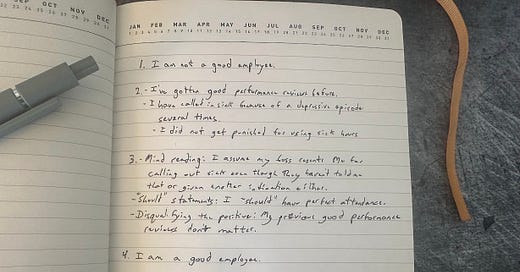 SEP OCT NOV DEC
JAN FEB MAR APR MAY JUN JUL AUG SEP OCT NOV DEC
1. I am not a good employee.
2. - I've gotten good performance reviews before.
- I have called in sick because of a depressive episode
several times.
- I did not get punished for using sick hours
3. - Mind reading: I assume my boss resents me for
calling out sick even though they haven't told me
that or given another indication either.
- "Should" statements: I "should" have perfect attendance.
- Disqualifying the positive: My previous good performance
reviews don't matter.
4. I am a good employee.